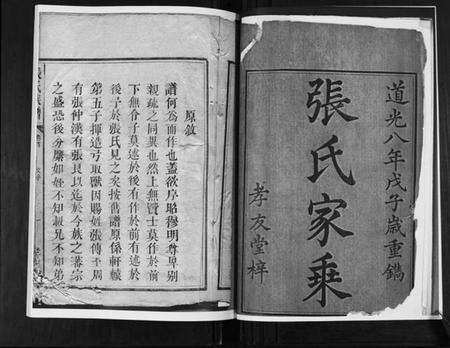 道光八年戊子歲重鐫
張氏家乘
孝友堂梓
原敘
譜何為而作也蓋欲序昭穆明尊卑別
親疏之同異也然上無賢士莫作於前
下無令子莫述於後有作於前有述於
後予於張氏見之矣按舊譜原係軒轅
第五子揮造弓取獸因賜姓張傳至周
有張仲漢有張良以迄於今族之蕃宗
之盛恐後分縻如姪不知叔兄不知弟